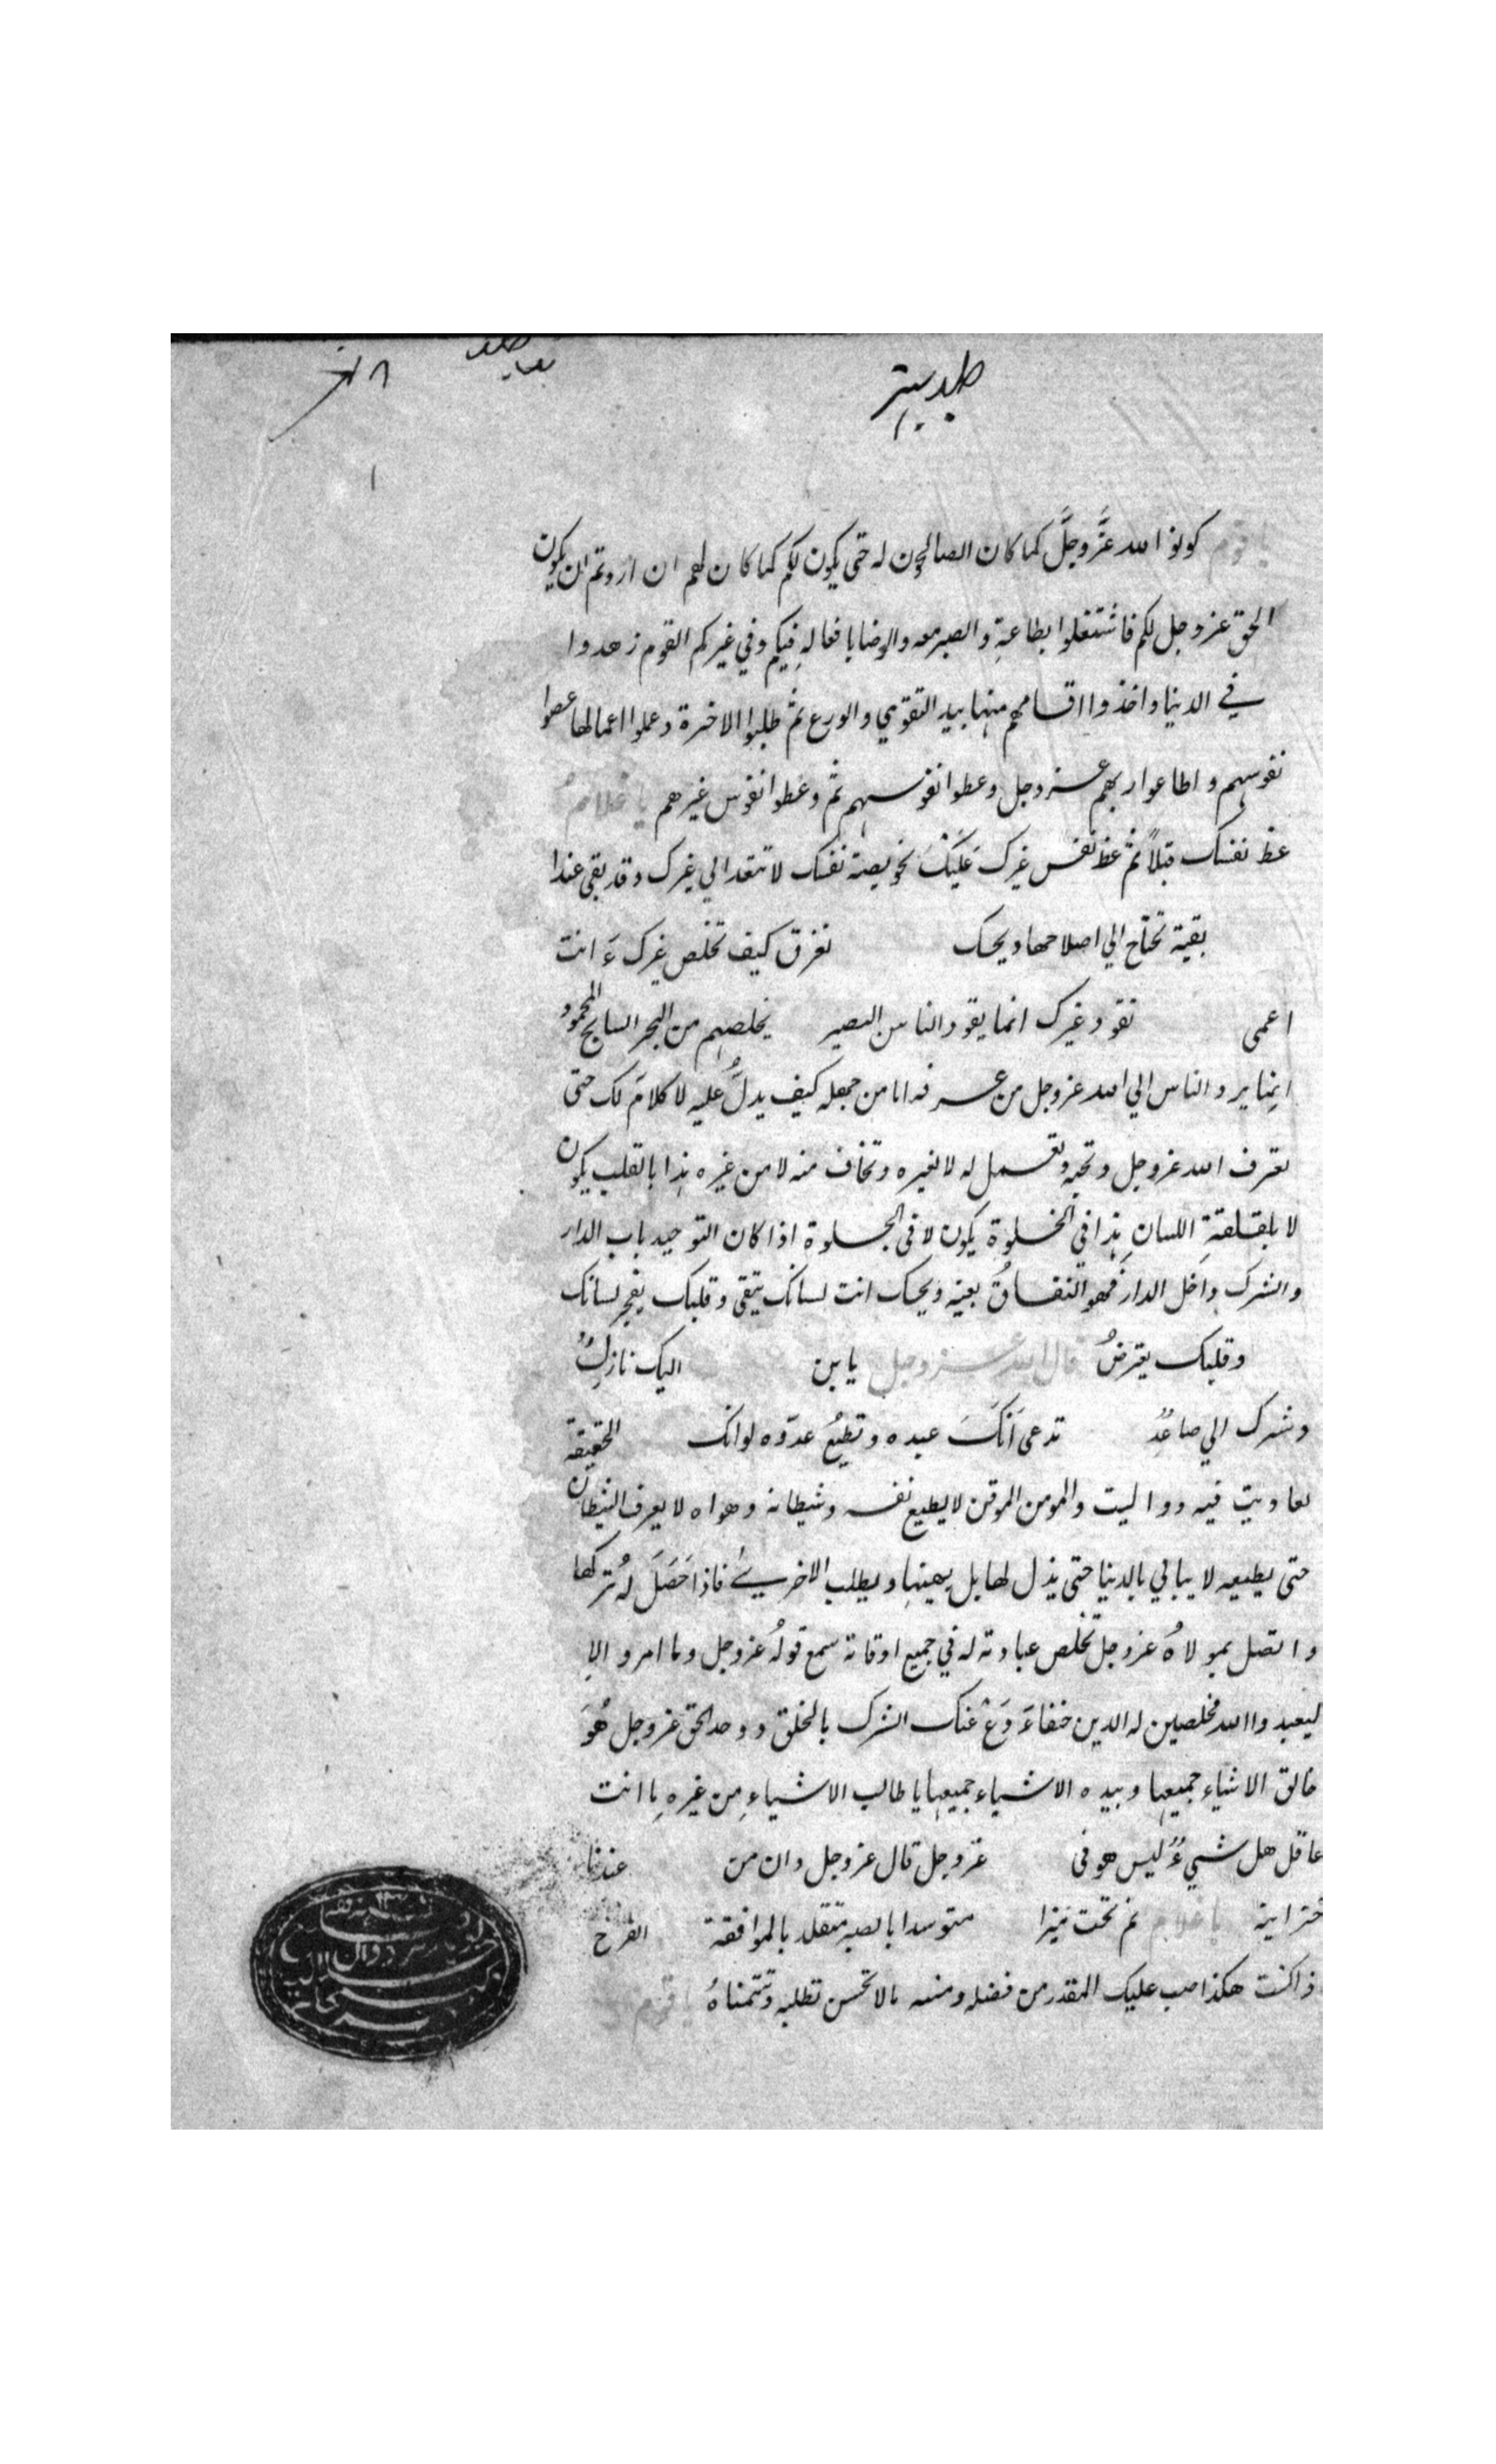 يا قوم كونوا لله عَزَّ وجلَّ كما كان الصالحون له حتى يكون لكم كما كان لهم ان اردتم ان يكون
الحق عز وجل لكم فاشتغلوا بطاعةِ والصبر معه والرضا بافعالهِ فيكم وفي غيركم القوم زهدوا
في الدنيا واخذوا اقسامهم منها بيد التقوي والورع ثم طلبوا الاخرة وعملوا اعمالها عصوا
نفوسهم واطاعوا ربهم عز وجل وعظوا نفوسهم ثم وعظوا نفوس غيرهم يا غلام
عظ نفسك قبلاً ثم عظ نفس غيرك عَلَيْكَ بخويصة نفسك لا تتعد الي غيرك وقد بقي عندا
بقية تحتاج الي اصلاحها ويحك تغرق كيف تخلص غيرك ءَ انت
اعمى تقود غيرك انما يقود الناس البصير يخلصهم من البحر السابح المحمود
انما يرد الناس الي الله عز وجل من عرفه اما من جهله كيف يدلُّ عليه لا كلامَ لك حتى
تعرف الله عز وجل وتحبه وتعمل له لا لغيره وتخاف منه لا من غيره هذا بالقلب يكون
لا بلقلقةِ اللسانِ هذا في الخلوة يكون لا في الجلوة اذا كان التوحيد باب الدار
والشرك داخل الدار فهو النفاقُ بعينه ويحك انت لسانك يتقي وقلبك يفجر لسانك
وقلبك يعترضُ قال الله عز وجل يا بن اليك نازلٌ
وشرك الي صاعدٌ تدعى اَنَّكَ عبده وتطيعُ عدوّه لو انك الحقيقة
لعاديت فيه وواليت والمومن الموقن لا يطيع نفسه وشيطانه وهواه لا يعرف الشيطان
حتى يطيعه لا يبالي بالدنيا حتى يذل لها بل يهينها ويطلب الاخرى فاذا حَصَلَ لهُ تركها
واتصل بمولاهُ عز وجل تخلص عبادته له في جميع اوقاته سمع قولهُ عز وجل وما امروا الا
ليعبدوا الله مخلصين له الدين حنفاءَ دَعْ عنك الشرك بالخلق ووحد الحق عز وجل هُوَ
خالق الاشياء جميعها وبيده الاشياء جميعها يا طالب الاشياءِ من غيرهِ ما انت
عاقل هل شيءٌ ليس هو في عز وجل قال عز وجل وان من عندنا
خزاينه يا غلام نم تحت ميزا متوسدا بالصبر متقلد بالموافقة الفرح
ذا كنت هكذا صب عليك المقدر من فضله ومننه مالا تحسن تطلبه وتتمناهُ يا قوم